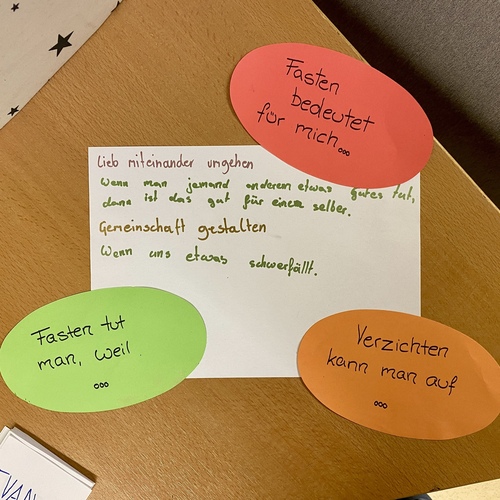 Fasten
bedeutet
für mich...
Lieb miteinander umgehen
Wenn man jemand anderem etwas gutes tut,
dann ist das gut für einem selber.
Gemeinschaft gestalten
Wenn uns etwas schwerfällt.
Fasten tut
man, weil
...
Verzichten
kann man auf
...